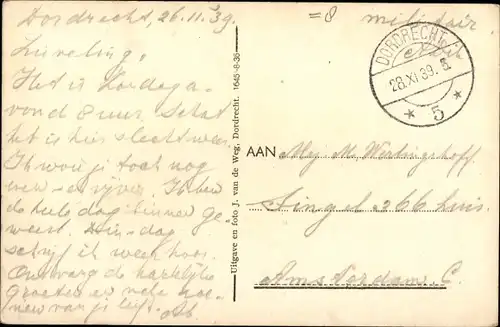 Dordrecht, 26.11.39.
Lieveling,
Het is Zondaga-
vond 8 uur. Schat
het is hier slecht weer.
Ik wou je toch nog
even schrijven. Ik ben
de hele dag binnen ge-
weest. Dins-dag
schrijf ik weer hoor.
Ontvang de hartelijke
groeten en vele zoe-
nen van je liefh.
Uitgave en foto J. van de Weg, Dordrecht. 1645-8-36
=8
militair
DORDRECHT
28.XI.39. 8.
* 5 *
AAN Mej. M. Werdingshoff.
Singel 366 huis.
Amsterdam. C.